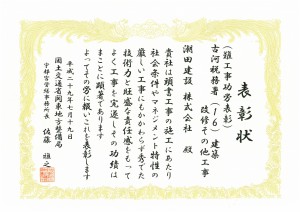 表彰状
(難工事功労表彰)
古河税務署(16)建築
改修その他工事
潮田建設 株式会社 殿
貴社は頭書工事の施工にあたり
社会条件やマネジメント特性の
厳しい工事にもかかわらず秀でた
技術力と旺盛な責任感をもって
よく工事を完遂しその功績は
まことに顕著であります
よってその労に報いこれを表彰します
平成二十九年七月十九日
国土交通省関東地方整備局
宇都宮営繕事務所長
佐藤